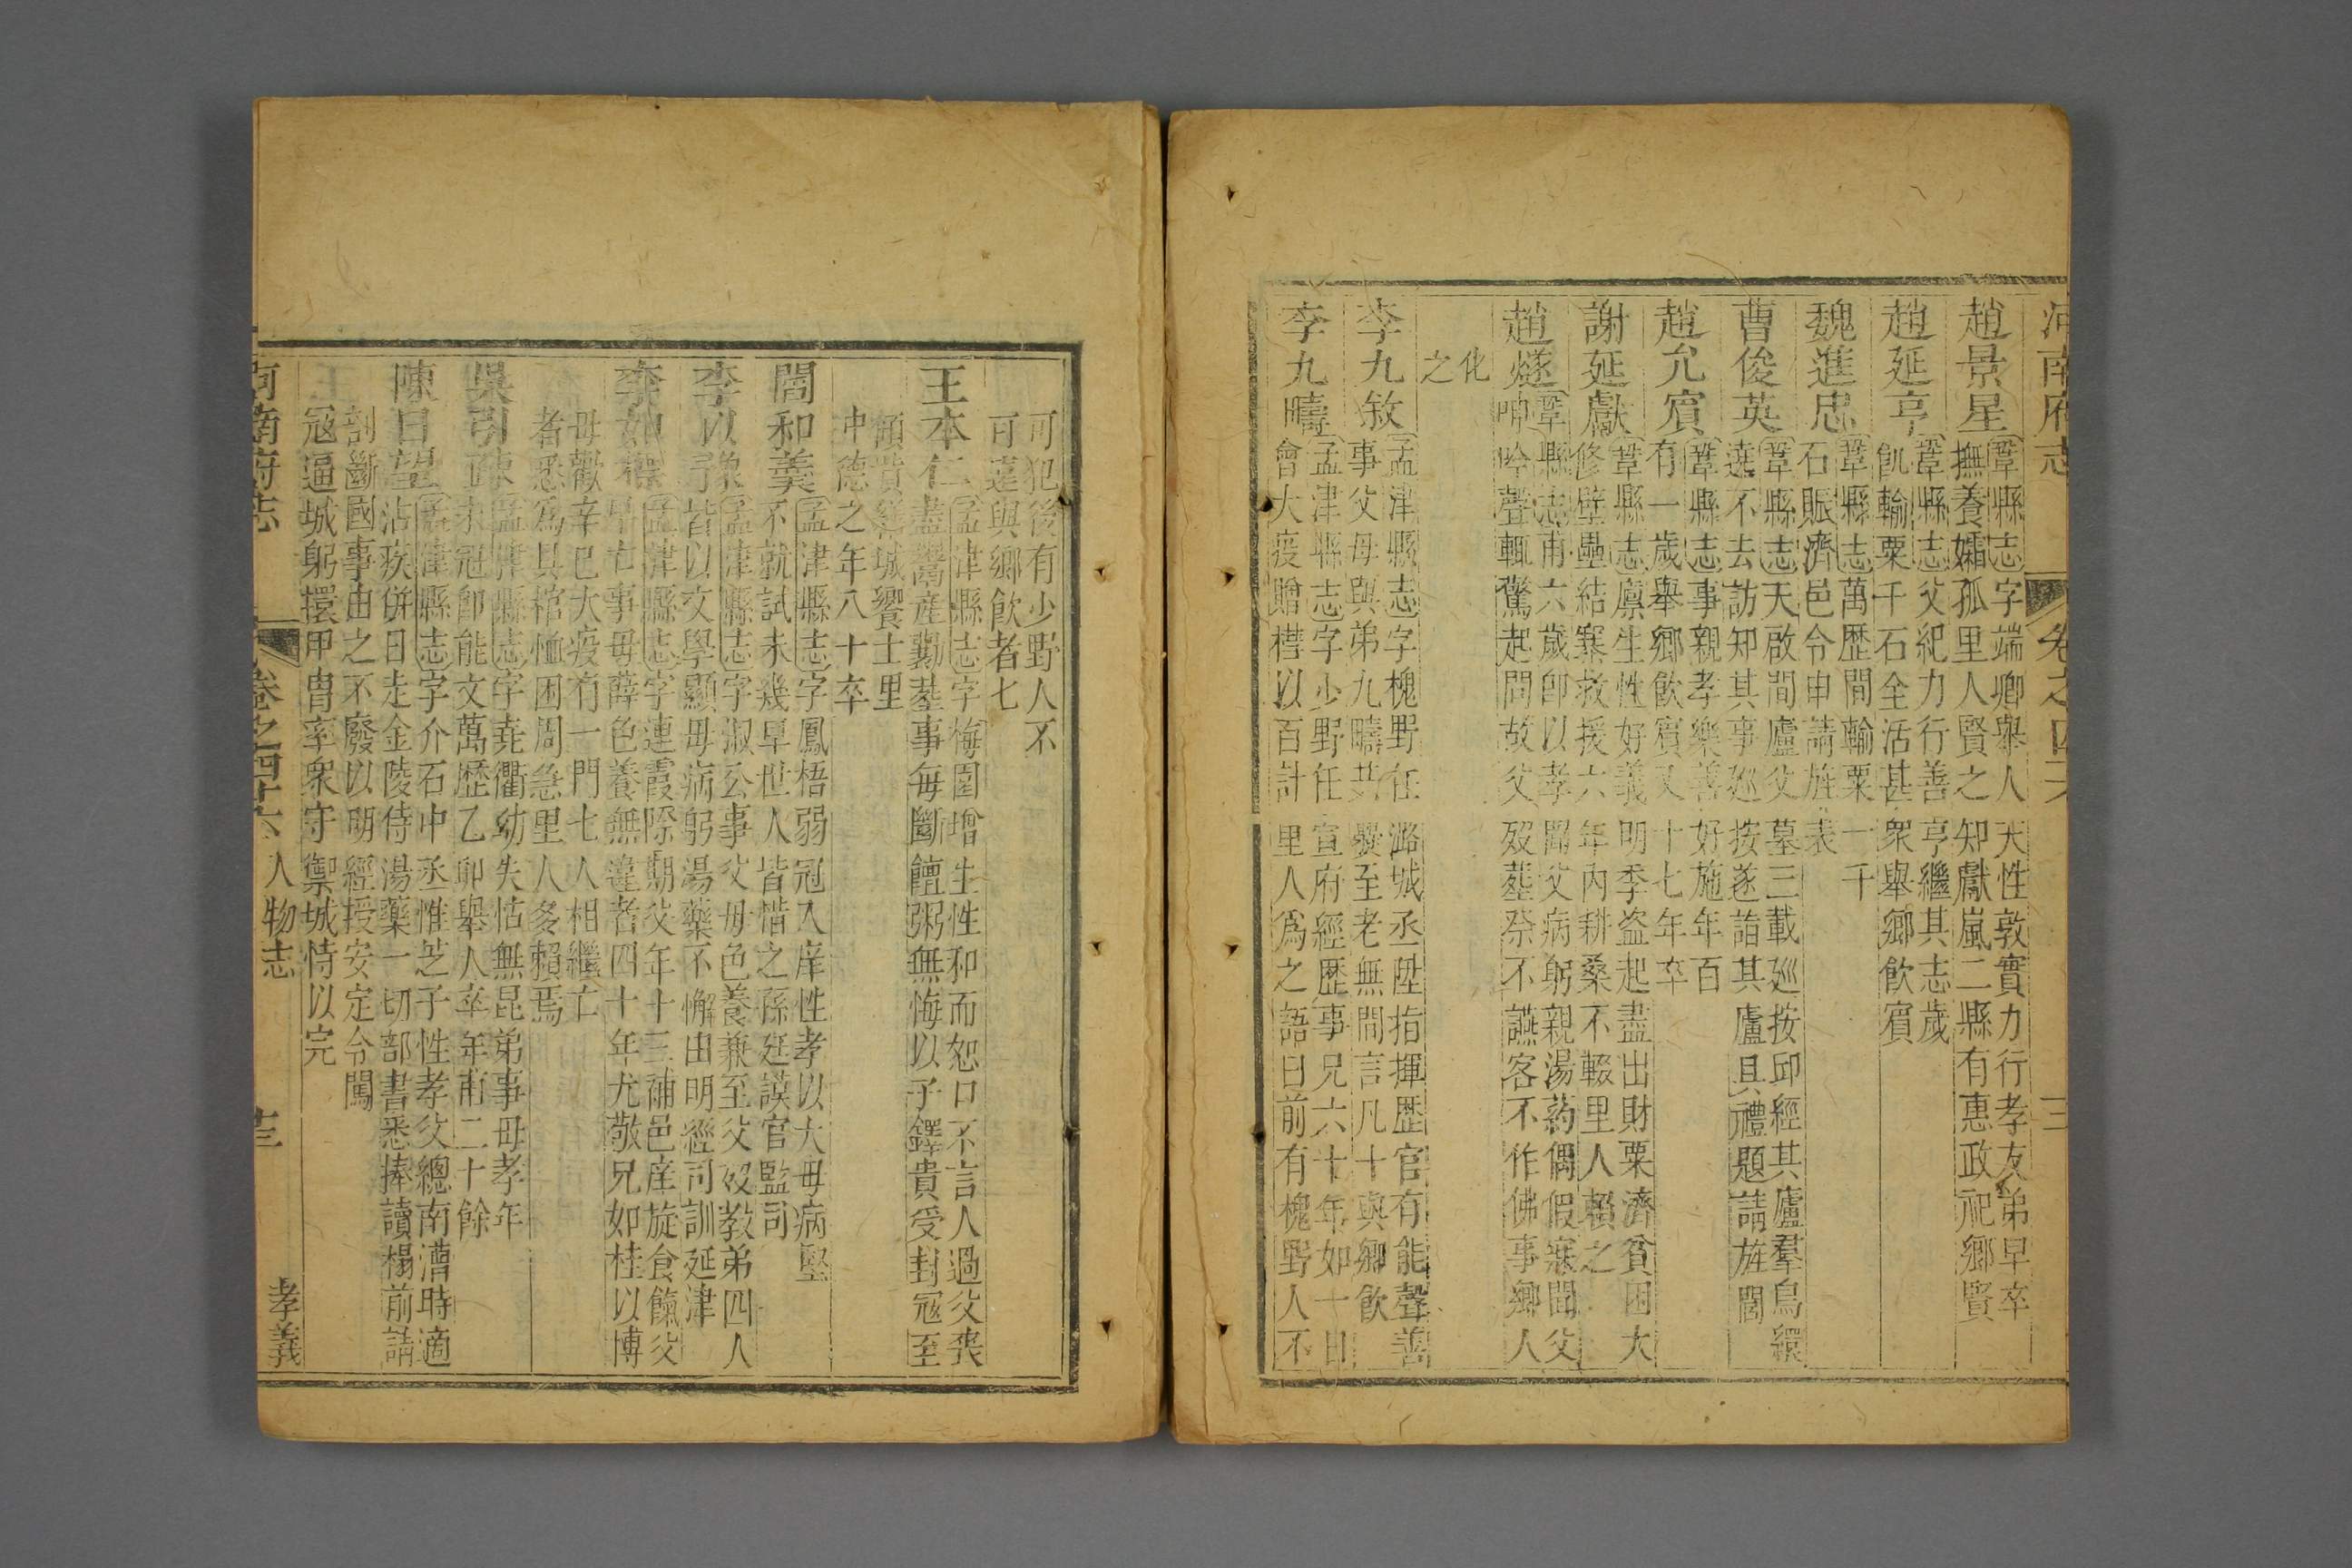 河南府志
卷之四十六
趙景星
鞏縣志字端卿舉人天性敦實力行孝友弟早卒
撫養孀孤里人賢之知獻嵐二縣有惠政祀鄉賢
趙延亨
鞏縣志父紀力行善亨繼其志歲
飢輸粟千石全活甚衆舉鄉飲賓
魏進忠
鞏縣志萬歷間輸粟一千
石賑濟邑令申請旌表
曹俊英
鞏縣志天啟間廬父墓三載廵按邱經其廬羣鳥繯
遶不去訪知其事廵按遂詣其廬具禮題請旌閭
趙允賓
鞏縣志事親孝樂善好施年百
有一歲舉鄉飲賓又十七年卒
謝延獻
鞏縣志廪生性好義明季盗起盡出財粟濟貧困大
修壁壘結寨救援六年內耕桑不輟里人賴之
趙燧
鞏縣志甫六歲卽以孝聞父病躬親湯葯偶假寐聞父
呻吟聲輒驚起問故父歿塟祭不讌客不作佛事鄉人
化
之
李九敘
孟津縣志字槐野任潞城丞陞指揮歷官有能聲善
事父母與弟九疇共㸑至老無間言凡十與鄉飲
李九疇
孟津縣志字少野任宣府經歷事兄六十年如一日
會大疫贈槥以百計里人爲之語曰前有槐野人不
可犯後有少野人不
可違與鄉飲者七
王本仁
孟津縣志字梅圃增生性和而恕口不言人過父喪
盡鬻産勷塟事毎斷饘粥無悔以子鐸貴受封冦至
傾貲繕城饗士里
冲德之年八十卒
閻和羹
孟津縣志字鳳梧弱冠入庠性孝以大毋病堅
不就試未幾早世人皆惜之孫廷謨官監司
李以豫
孟津縣志字淑公事父毋色養兼至父歿教弟四人
弓皆以文學顯毋病躬湯藥不懈由明經司訓延津
李如標
孟津縣志字連霞除期父年十三補邑庠旋食餼父
早亡事毋薛色養無違者四十年尤敬兄如桂以博
毋歡辛巳大疫有一門七人相繼亡
者悉爲其棺恤困周急里人多賴焉
吳引陳
孟津縣志字堯衢幼失怙無昆弟事毋孝年
未冠卽能文萬歷乙卯舉人卒年甫二十餘
陳日望
孟津縣志字介石中丞惟芝子性孝父總南漕時適
沾疾併日走金陵侍湯藥一切部書悉捧讀榻前請
剖斷國事由之不廢以明經授安定令闖
冦逼城躬擐甲胄率衆守禦城恃以完
河南府志
卷之四十六
人物志
孝義